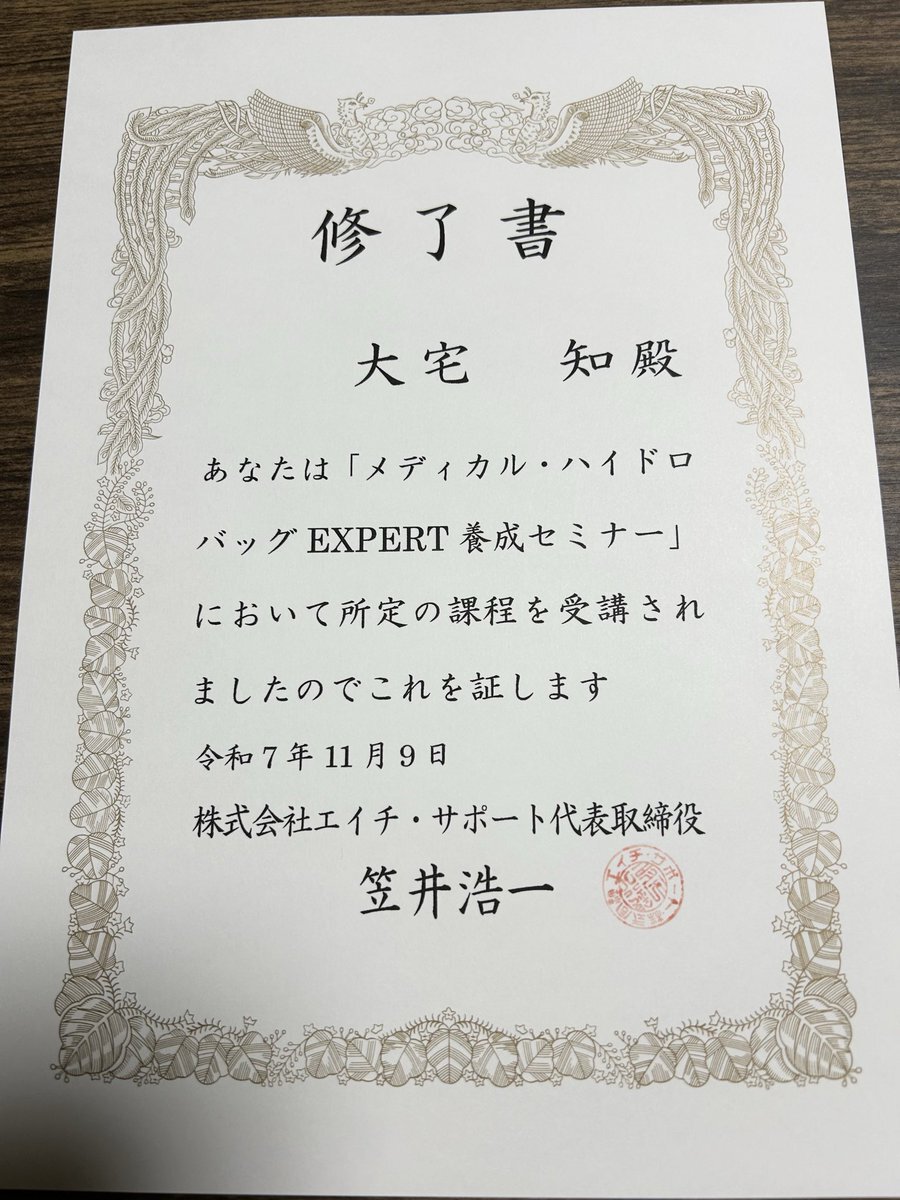 修了書
大宅 知殿
あなたは「メディカル・ハイドロ
バッグEXPERT養成セミナー」
において所定の課程を受講され
ましたのでこれを証します
令和7年11月9日
株式会社エイチ・サポート代表取締役
笠井浩一